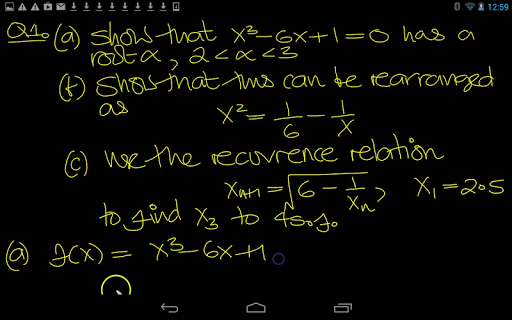 12:59
Q1. (a) show that x³-6x+1=0 has a
root α, 2<α<3
(b) show that this can be rearranged
as x² = 1/6 - 1/x
(c) use the recurrence relation
xₙ₊₁ = √(6 - 1/xₙ), x₁ = 2.5
to find x₃ to 4s.f.
(a) f(x) = x³-6x+1